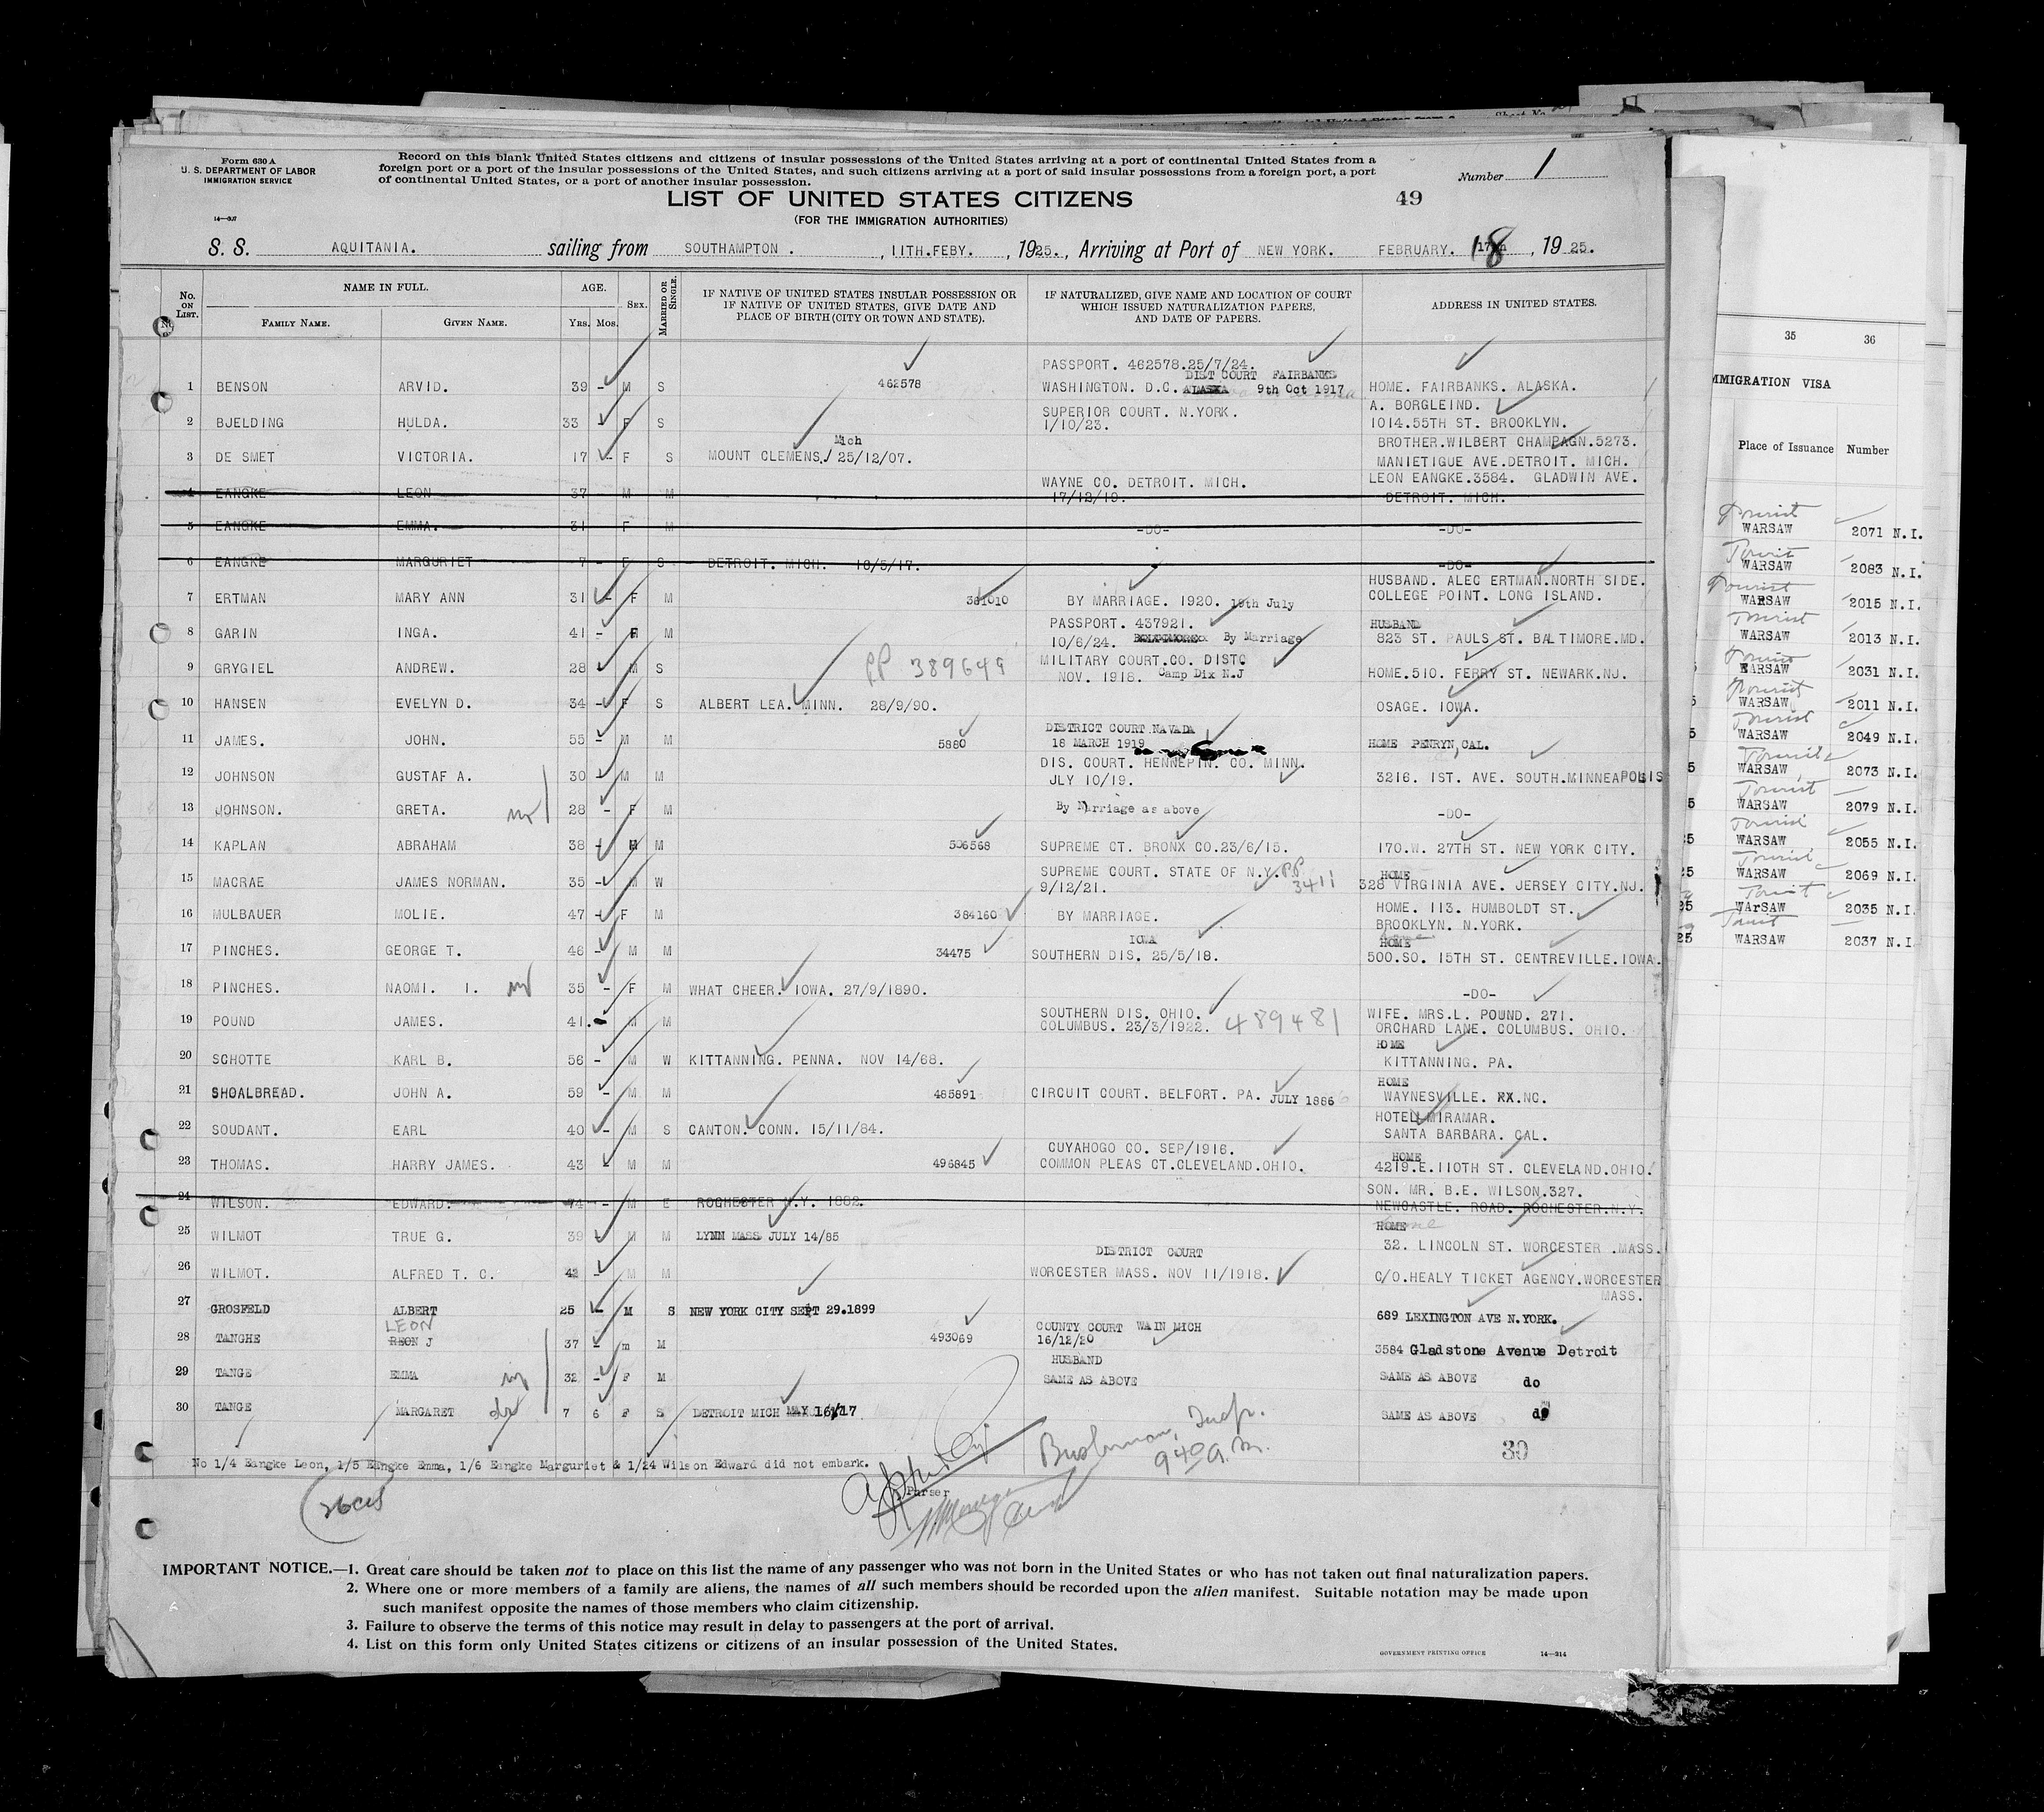 Form 630 A
U. S. DEPARTMENT OF LABOR
IMMIGRATION SERVICE
14—307
Record on this blank United States citizens and citizens of insular possessions of the United States arriving at a port of continental United States from a
foreign port or a port of the insular possessions of the United States, and such citizens arriving at a port of said insular possessions from a foreign port, a port
of continental United States, or a port of another insular possession.
Number 1
LIST OF UNITED STATES CITIZENS
49
(FOR THE IMMIGRATION AUTHORITIES)
S. S. AQUITANIA. sailing from SOUTHAMPTON . , 11TH.FEBY. , 1925. , Arriving at Port of NEW YORK. FEBRUARY. 18 , 19 25.
No. ON LIST. NAME IN FULL. FAMILY NAME. GIVEN NAME. AGE. YRS. MOS. SEX. MARRIED OR SINGLE. IF NATIVE OF UNITED STATES INSULAR POSSESSION OR IF NATIVE OF UNITED STATES, GIVE DATE AND PLACE OF BIRTH (CITY OR TOWN AND STATE). IF NATURALIZED, GIVE NAME AND LOCATION OF COURT WHICH ISSUED NATURALIZATION PAPERS, AND DATE OF PAPERS. ADDRESS IN UNITED STATES.
PASSPORT. 462578.25/7/24.
DIST COURT FAIRBANKS
1 BENSON ARVID. 39 - M S 462578 WASHINGTON. D.C. ALASKA 9th Oct 1917 HOME. FAIRBANKS. ALASKA.
SUPERIOR COURT. N.YORK. A. BORGLEIND.
2 BJELDING HULDA. 33 - F S 1/10/23. 1014.55TH ST. BROOKLYN.
Mich BROTHER.WILBERT CHAMPAGN.5273.
3 DE SMET VICTORIA. 17 - F S MOUNT CLEMENS. 25/12/07. MANIETIGUE AVE.DETROIT. MICH.
WAYNE CO. DETROIT. MICH. LEON EANGKE.3584. GLADWIN AVE.
4 EANGKE LEON 37 - M M 17/12/19. DETROIT. MICH.
5 EANGKE EMMA. 31 F M -DO- -DO-
6 EANGKE MARGURIET 7 - F S DETROIT. MICH. 16/5/17. -DO-
HUSBAND. ALEC ERTMAN.NORTH SIDE.
7 ERTMAN MARY ANN 31 - F M 381010 BY MARRIAGE. 1920. 19th July COLLEGE POINT. LONG ISLAND.
PASSPORT. 437921. HUSBAND
8 GARIN INGA. 41 - F M 10/6/24. By Marriage 823 ST. PAULS ST. BALTIMORE.MD.
MILITARY COURT.CO. DISTC
9 GRYGIEL ANDREW. 28 M S PP 389649 NOV. 1918. Camp Dix N.J HOME.510. FERRY ST. NEWARK.NJ.
10 HANSEN EVELYN D. 34 - F S ALBERT LEA. MINN. 28/9/90. OSAGE. IOWA.
DISTRICT COURT NAVADA
11 JAMES. JOHN. 55 - M M 5880 18 MARCH 1919 HOME PENRYN, CAL.
DIS. COURT. HENNEPIN. CO. MINN.
12 JOHNSON GUSTAF A. 30 - M M JLY 10/19. 3216. 1ST. AVE. SOUTH.MINNEAPOLIS
13 JOHNSON. GRETA. 28 - F M By Marriage as above -DO-
14 KAPLAN ABRAHAM 38 - M M 506568 SUPREME CT. BRONX CO.23/6/15. 170.W. 27TH ST. NEW YORK CITY.
SUPREME COURT. STATE OF N.Y. PP 3411 HOME
15 MACRAE JAMES NORMAN. 35 - M W 9/12/21. 328 VIRGINIA AVE. JERSEY CITY.NJ.
HOME. 113. HUMBOLDT ST.
16 MULBAUER MOLIE. 47 - F M 384160 BY MARRIAGE. BROOKLYN. N.YORK.
IOWA HOME
17 PINCHES. GEORGE T. 46 - M M 34475 SOUTHERN DIS. 25/5/18. 500.SO. 15TH ST. CENTREVILLE.IOWA.
18 PINCHES. NAOMI. I. 35 - F M WHAT CHEER. IOWA. 27/9/1890. -DO-
SOUTHERN DIS. OHIO. WIFE. MRS.L. POUND. 271.
19 POUND JAMES. 41. - M M COLUMBUS. 23/3/1922. 489481 ORCHARD LANE. COLUMBUS. OHIO.
HOME
20 SCHOTTE KARL B. 56 - M W KITTANNING. PENNA. NOV 14/68. KITTANNING. PA.
HOME
21 SHOALBREAD. JOHN A. 59 - M M 485891 CIRCUIT COURT. BELFORT. PA. JULY 1886 WAYNESVILLE. NC.
HOTEL MIRAMAR.
22 SOUDANT. EARL 40 - M S CANTON. CONN. 15/11/84. SANTA BARBARA. CAL.
CUYAHOGO CO. SEP/1916. HOME
23 THOMAS. HARRY JAMES. 43 - M M 496845 COMMON PLEAS CT.CLEVELAND.OHIO. 4219.E.110TH ST. CLEVELAND.OHIO.
SON. MR. B.E. WILSON.327.
24 WILSON. EDWARD. 74 - M E ROCHESTER N.Y. 1882. NEWCASTLE. ROAD. ROCHESTER.N.Y.
HOME
25 WILMOT TRUE G. 39 - M M LYNN MASS JULY 14/85 32. LINCOLN ST. WORCESTER .MASS.
DISTRICT COURT
26 WILMOT. ALFRED T. C. 42 - M M WORCESTER MASS. NOV 11/1918. C/O.HEALY TICKET AGENCY.WORCESTER
MASS.
27 GROSFELD ALBERT 25 - M S NEW YORK CITY SEPT 29.1899 689 LEXINGTON AVE N.YORK.
LEON COUNTY COURT WAIN MICH
28 TANGHE REON J 37 - m M 493069 16/12/20 3584 Gladstone Avenue Detroit
HUSBAND
29 TANGE EMMA 32 - F M SAME AS ABOVE SAME AS ABOVE do
30 TANGE MARGARET 7 6 F S DETROIT MICH MAY 16/17 SAME AS ABOVE do
Busbrman, Insp.
940 a.m.
30
No 1/4 Eangke Leon, 1/5 Eangke Emma, 1/6 Eangke Marguriet & 1/24 Wilson Edward did not embark.
Purser
26 cits
IMPORTANT NOTICE.—1. Great care should be taken not to place on this list the name of any passenger who was not born in the United States or who has not taken out final naturalization papers.
2. Where one or more members of a family are aliens, the names of all such members should be recorded upon the alien manifest. Suitable notation may be made upon
such manifest opposite the names of those members who claim citizenship.
3. Failure to observe the terms of this notice may result in delay to passengers at the port of arrival.
4. List on this form only United States citizens or citizens of an insular possession of the United States.
GOVERNMENT PRINTING OFFICE 14—314
35 36
MMIGRATION VISA
Place of Issuance Number
Tourist
WARSAW 2071 N.I.
Tourist
WARSAW 2083 N.I.
Tourist
WARSAW 2015 N.I.
Tourist
WARSAW 2013 N.I.
Tourist
WARSAW 2031 N.I.
Tourist
WARSAW 2011 N.I.
Tourist
WARSAW 2049 N.I.
Tourist
WARSAW 2073 N.I.
Tourist
WARSAW 2079 N.I.
Tourist
WARSAW 2055 N.I.
Tourist
WARSAW 2069 N.I.
Tourist
WArSAW 2035 N.I.
Tourist
WARSAW 2037 N.I